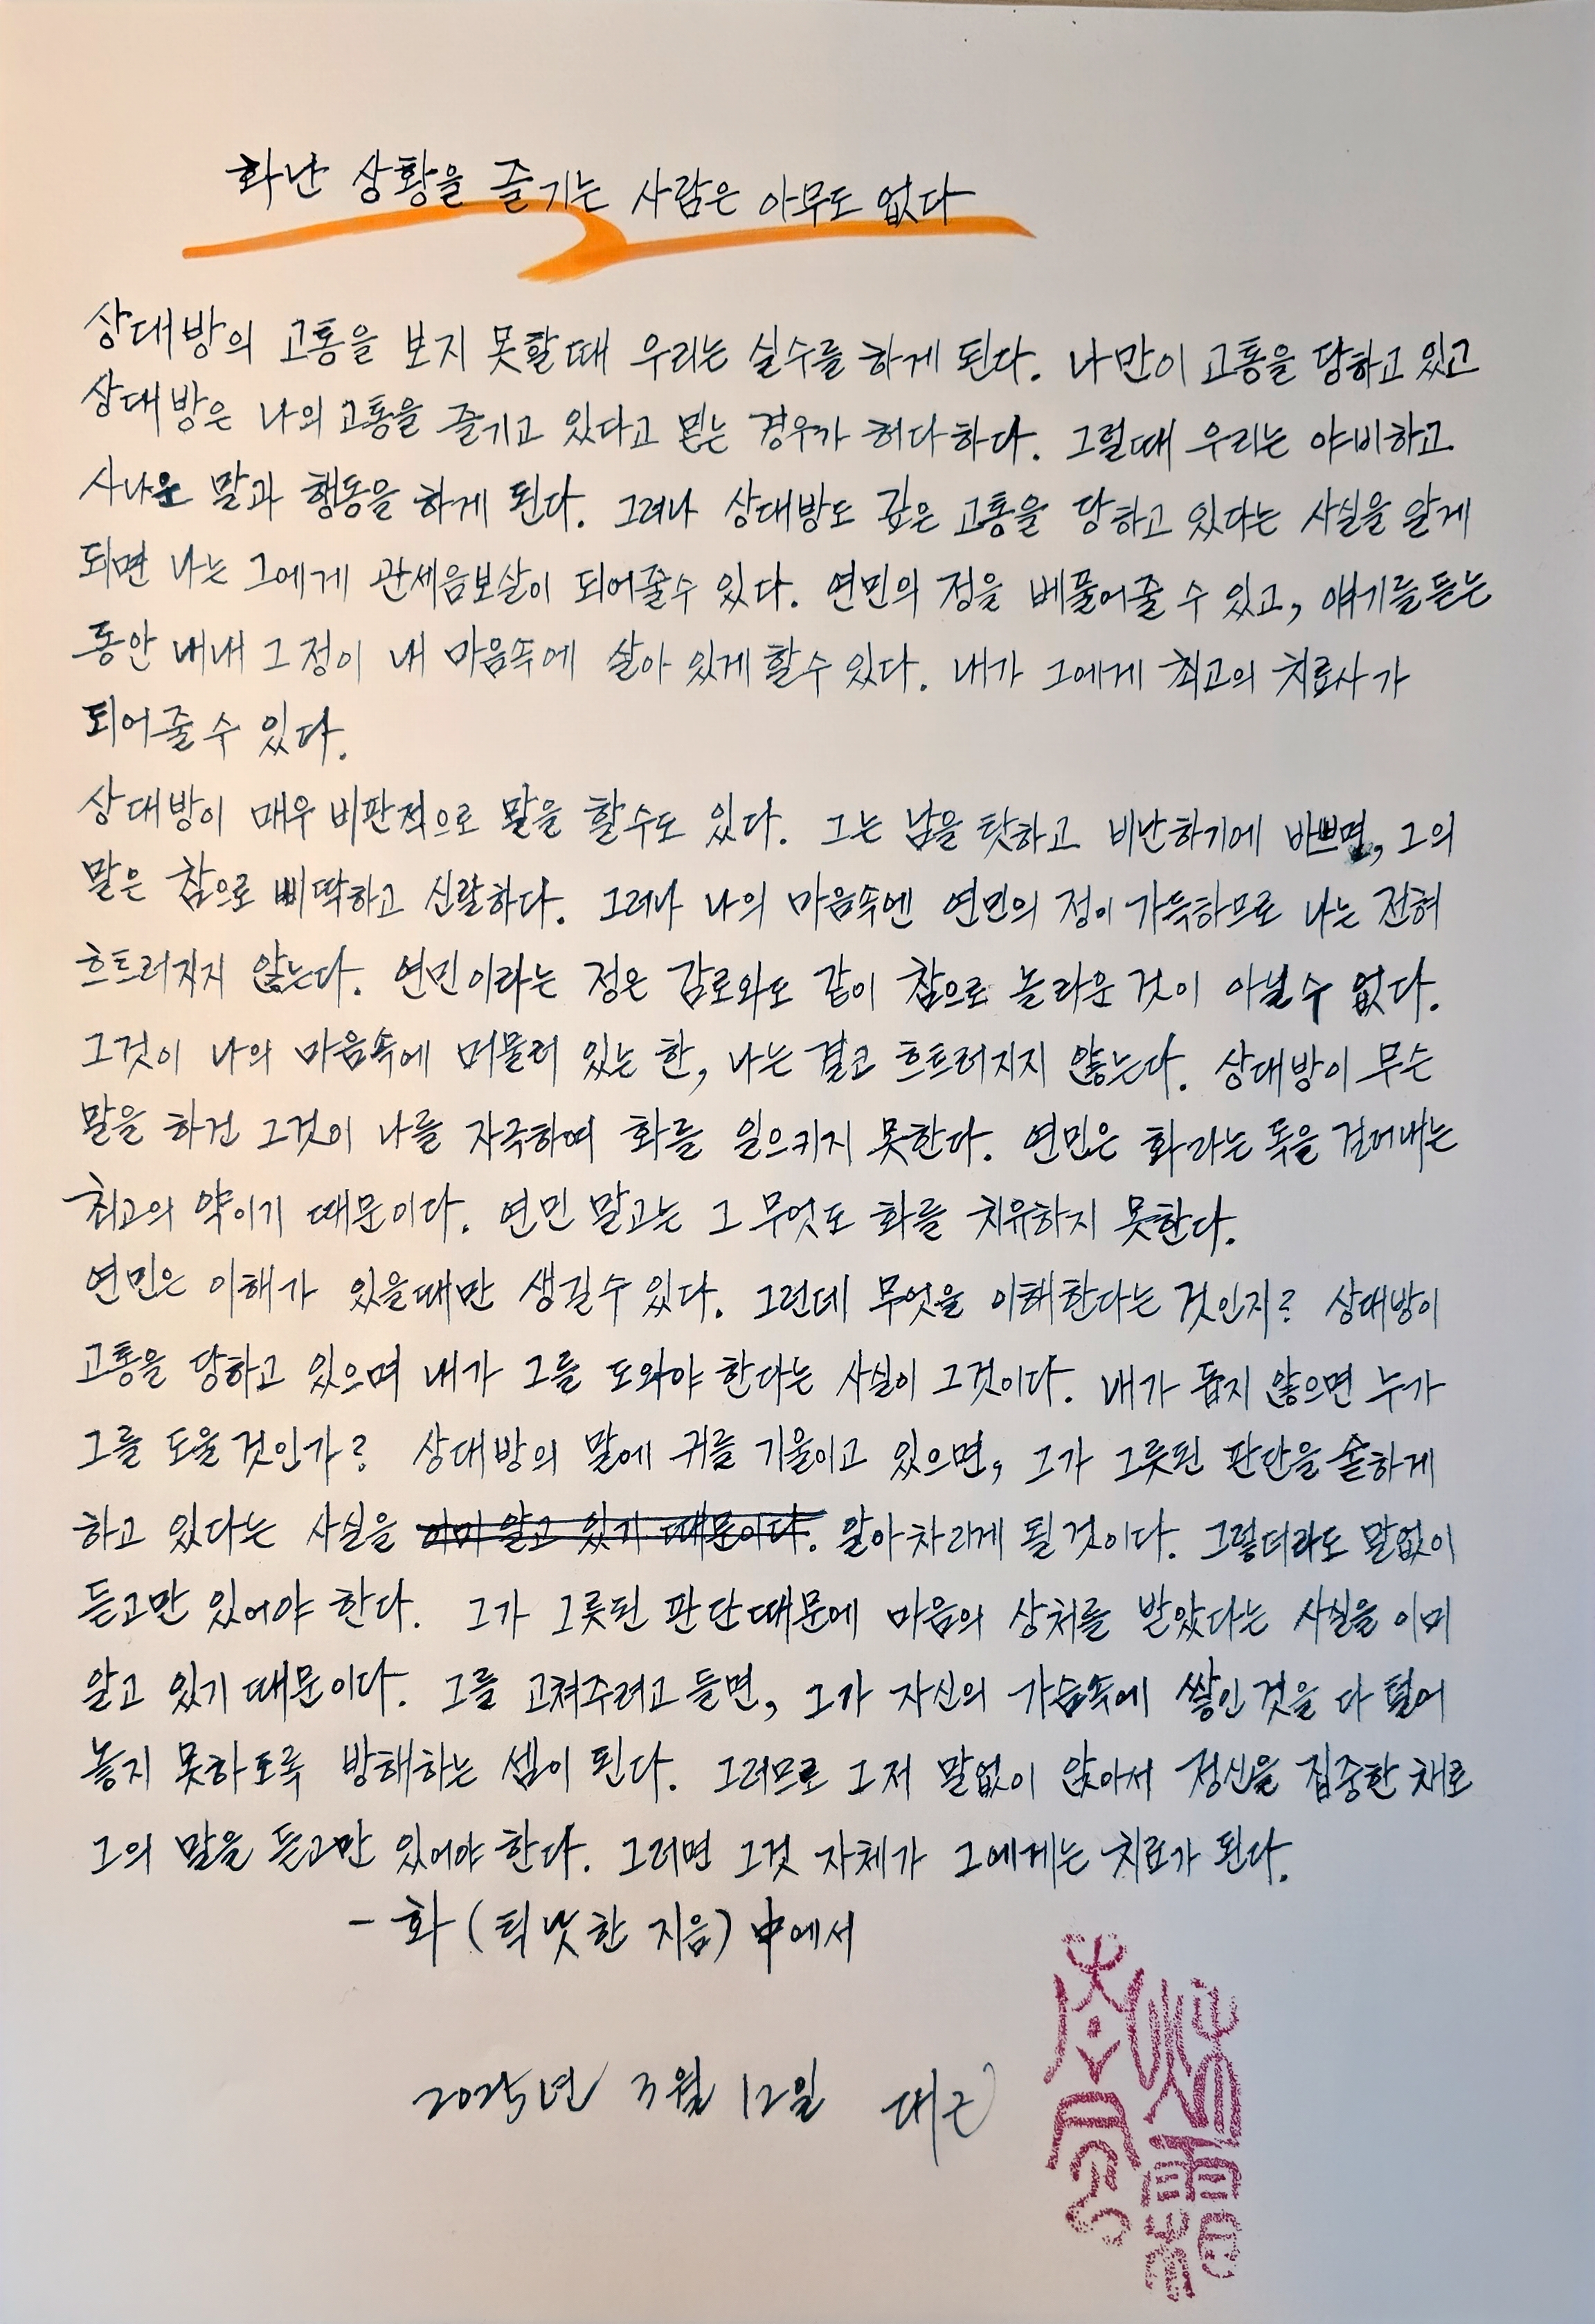 화난 상황을 즐기는 사람은 아무도 없다
상대방의 고통을 보지 못할때 우리는 실수를 하게 된다. 나만이 고통을 당하고 있고
상대방은 나의 고통을 즐기고 있다고 믿는 경우가 허다하다. 그럴때 우리는 야비하고
사나운 말과 행동을 하게 된다. 그러나 상대방도 깊은 고통을 당하고 있다는 사실을 알게
되면 나는 그에게 관세음보살이 되어줄수 있다. 연민의 정을 베풀어줄 수 있고, 얘기를 듣는
동안 내내 그 정이 내 마음속에 살아 있게 할수 있다. 내가 그에게 최고의 치료사가
되어줄 수 있다.
상대방이 매우 비판적으로 말을 할수도 있다. 그는 남을 탓하고 비난하기에 바쁘며, 그의
말은 참으로 삐딱하고 신랄하다. 그러나 나의 마음속엔 연민의 정이 가득하므로 나는 전혀
흐트러지지 않는다. 연민이라는 정은 감로와도 같이 참으로 놀라운 것이 아닐수 없다.
그것이 나의 마음속에 머물러 있는 한, 나는 결코 흐트러지지 않는다. 상대방이 무슨
말을 하건 그것이 나를 자극하여 화를 일으키지 못한다. 연민은 화라는 독을 걷어내는
최고의 약이기 때문이다. 연민 말고는 그 무엇도 화를 치유하지 못한다.
연민은 이해가 있을때만 생길수 있다. 그런데 무엇을 이해한다는 것인지? 상대방이
고통을 당하고 있으며 내가 그를 도와야 한다는 사실이 그것이다. 내가 돕지 않으면 누가
그를 도울 것인가? 상대방의 말에 귀를 기울이고 있으면, 그가 그릇된 판단을 숱하게
하고 있다는 사실을 이미 알고 있기 때문이다. 알아차리게 될 것이다. 그렇더라도 말없이
듣고만 있어야 한다. 그가 그릇된 판단때문에 마음의 상처를 받았다는 사실을 이미
알고 있기 때문이다. 그를 고쳐주려고 들면, 그가 자신의 가슴속에 쌓인 것을 다 털어
놓지 못하도록 방해하는 셈이 된다. 그러므로 그저 말없이 앉아서 정신을 집중한 채로
그의 말을 듣고만 있어야 한다. 그러면 그것 자체가 그에게는 치료가 된다.
- 화 (틱낫한 지음) 中에서
2025년 3월 12일 대근